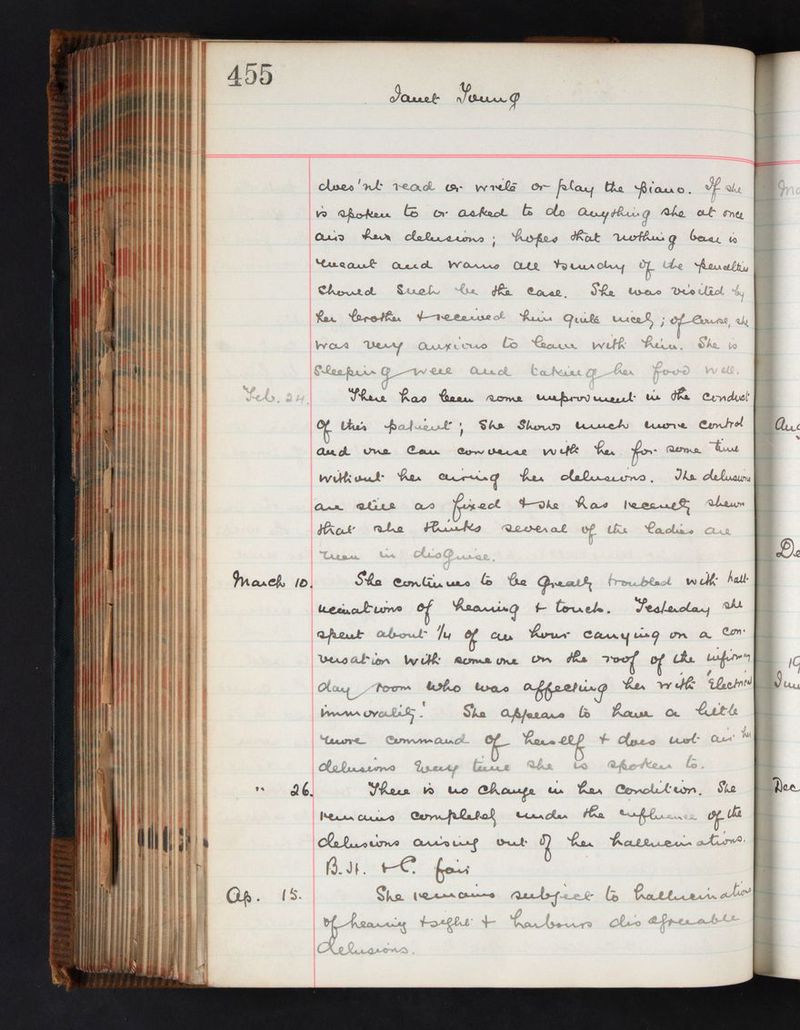 455
Janet Young
does'nt read or write or play the piano. If she
is spoken to or asked to do anything she at once
airs her delusions; hopes that nothing base is
meant and warns all & sundry of the penalties
should such be the case. She was visited by
her brother & received him quite nicely; of course, she
was very anxious to leave with him. She is
sleeping well and taking her food well.
Feb. 24. There has been some improvement in the conduct
of this patient; She shows much more control
and one can converse with her for some time
without her airing her delusions. The delusions
are still as fixed & she has recently shewn
that she thinks several of the ladies are
men in disguise.
March 10. She continues to be greatly troubled with hall-
ucinations of hearing & touch. Yesterday she
spent about 1/4 of an hour carrying on a con-
versation with some one on the roof of the infirmary
day room who was affecting her with "Electrical
immorality." She appears to have a little
more command of herself & does not air her
delusions every time she is spoken to.
" 26. There is no change in her condition. She
remains completely under the influence of the
delusions arising out of her hallucinations.
B.H. & C. fair
Ap. 15. She remains subject to hallucinations
of hearing & sight & harbours disagreeable
delusions.
Dec